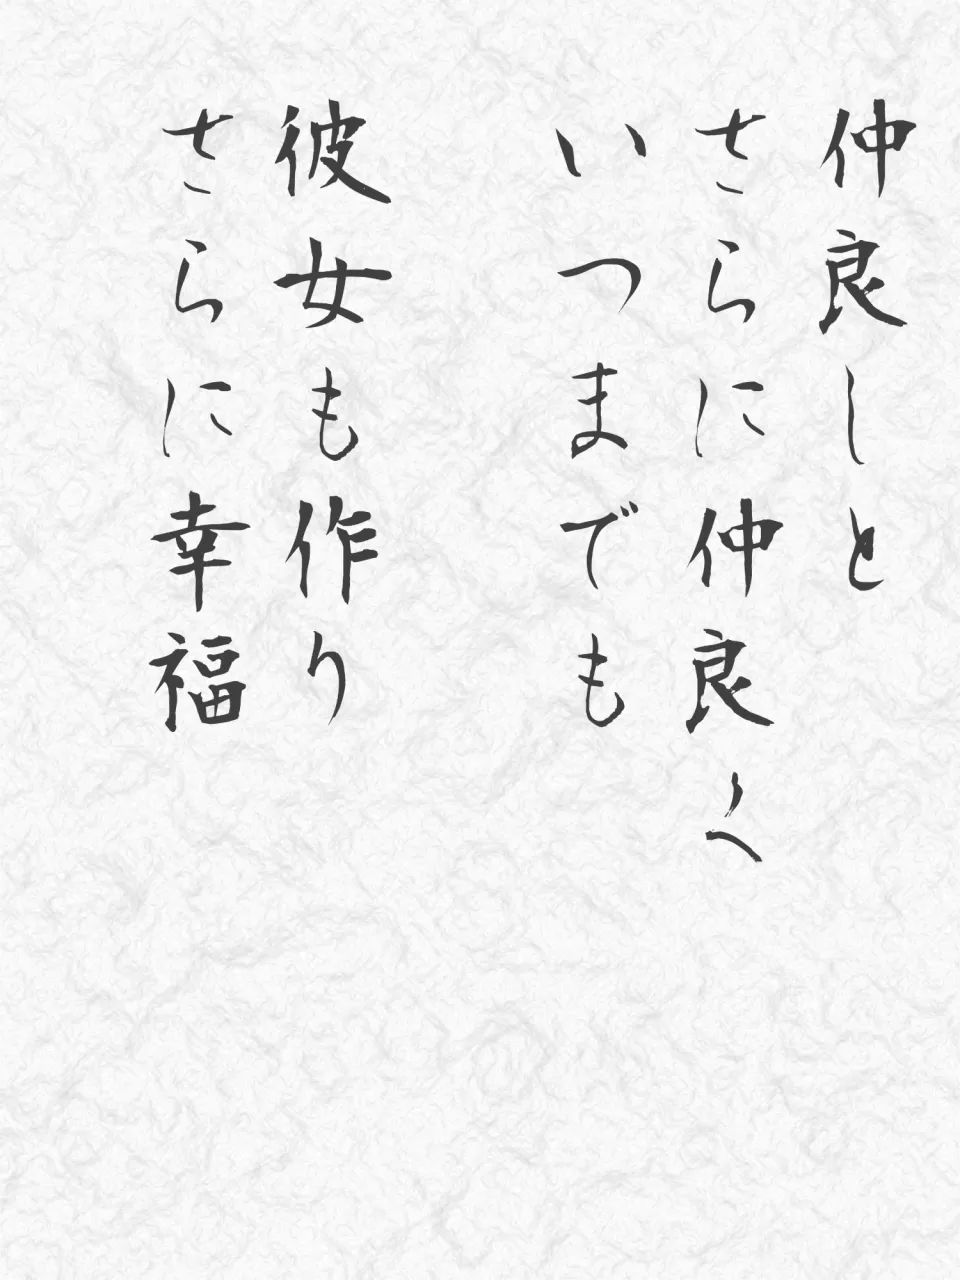 仲良しと
さらに仲良く
いつまでも
彼女も作り
さらに幸福